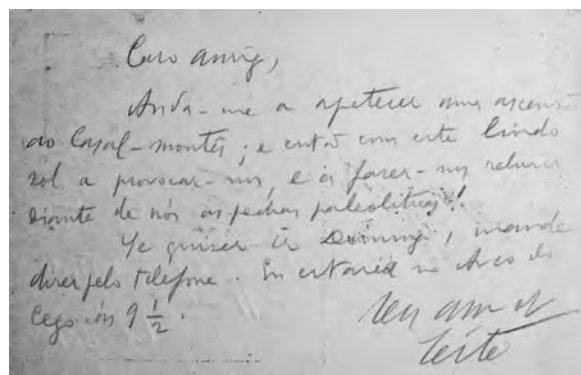 Caro amigo,
Anda-me a apetecer uma ascensão
ao Casal-montês; e então com este lindo
sol a provocar-nos, e a fazer-nos reluzir
diante de nós as pedras paleolíticas!
Se quiser ir Domingo, mande
dizer pelo telefone. Eu estarei no Arco do
Cego ás 9 1/2.
Seu am.º
Leite